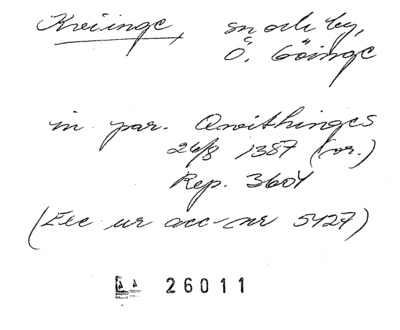 Kviinge, sn och by,
Ö. Göinge
in par. Qwithinges
26/8 1387 (or.)
Rep. 3604
(Exc ur acc-nr 5427)
26011